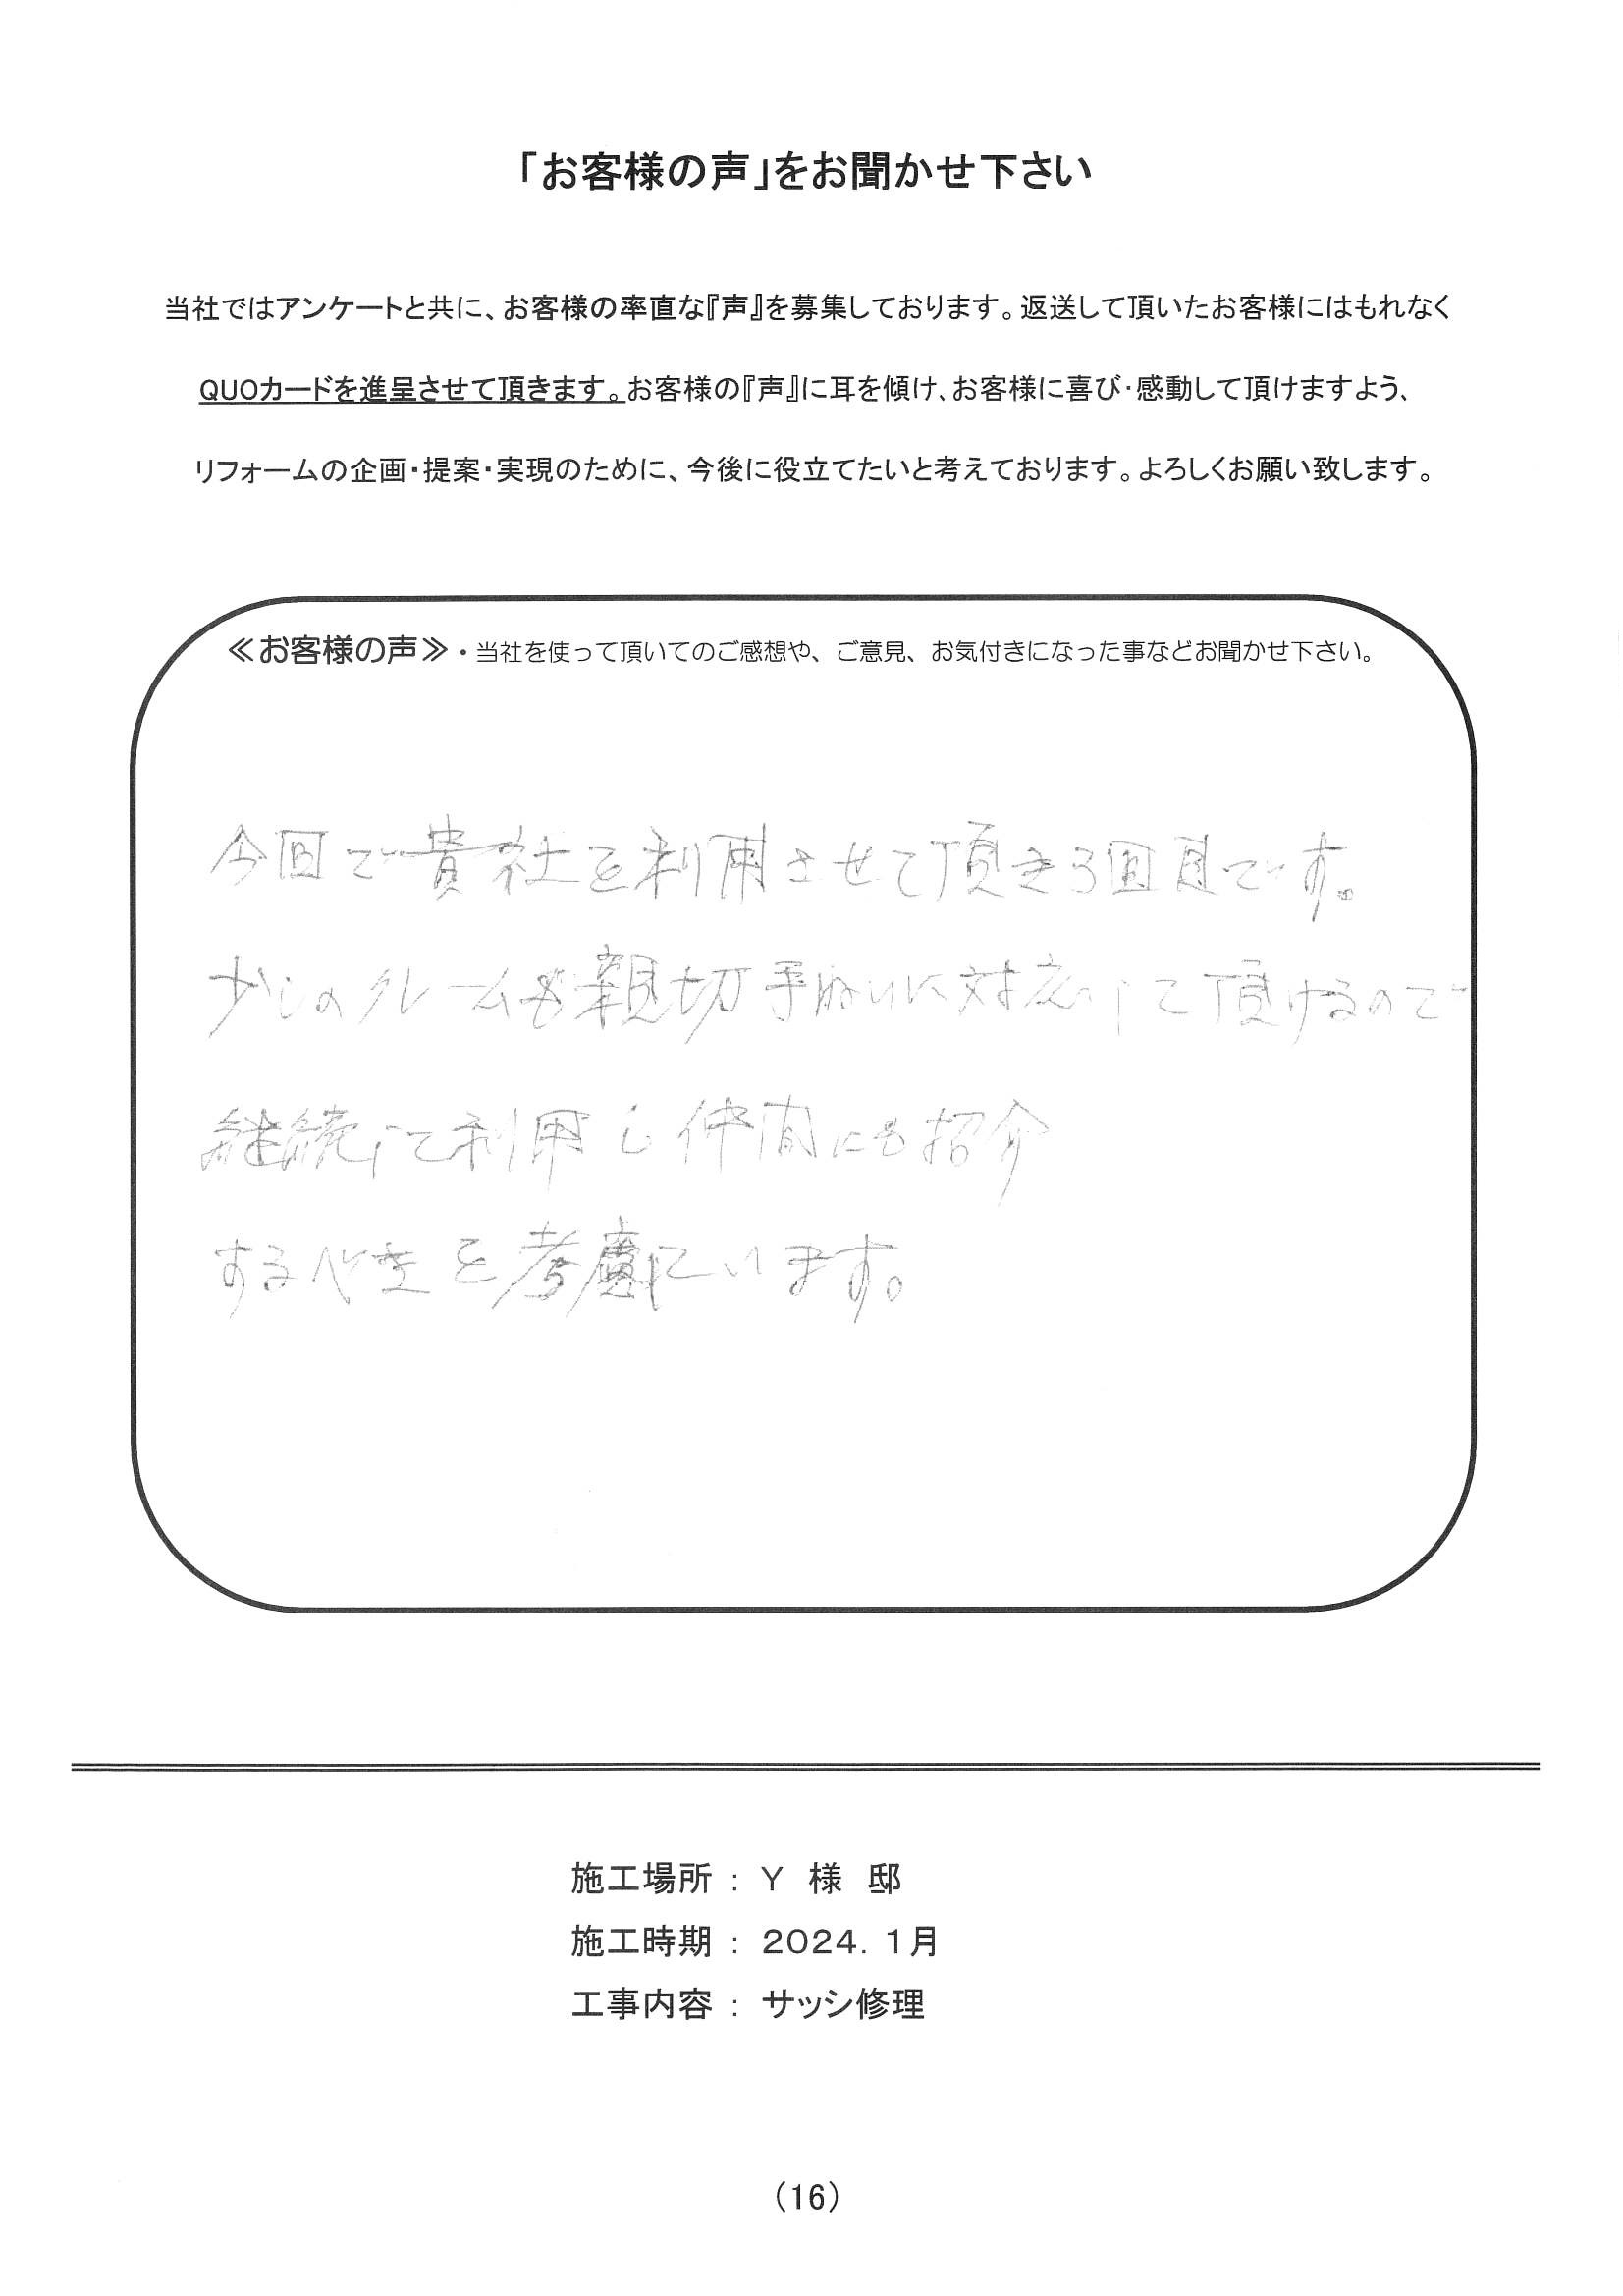 「お客様の声」をお聞かせ下さい
当社ではアンケートと共に、お客様の率直な『声』を募集しております。返送して頂いたお客様にはもれなく
QUOカードを進呈させて頂きます。お客様の『声』に耳を傾け、お客様に喜び・感動して頂けますよう、
リフォームの企画・提案・実現のために、今後に役立てたいと考えております。よろしくお願い致します。
≪お客様の声≫・当社を使って頂いてのご感想や、ご意見、お気付きになった事などお聞かせ下さい。
今回で貴社を利用させて頂き3回目です。
少しのクレームも親切に対応して頂けるので
継続して利用し仲間にも紹介
するべきを考慮しています。
施工場所 : Y 様 邸
施工時期 : 2024. 1月
工事内容 : サッシ修理
(16)